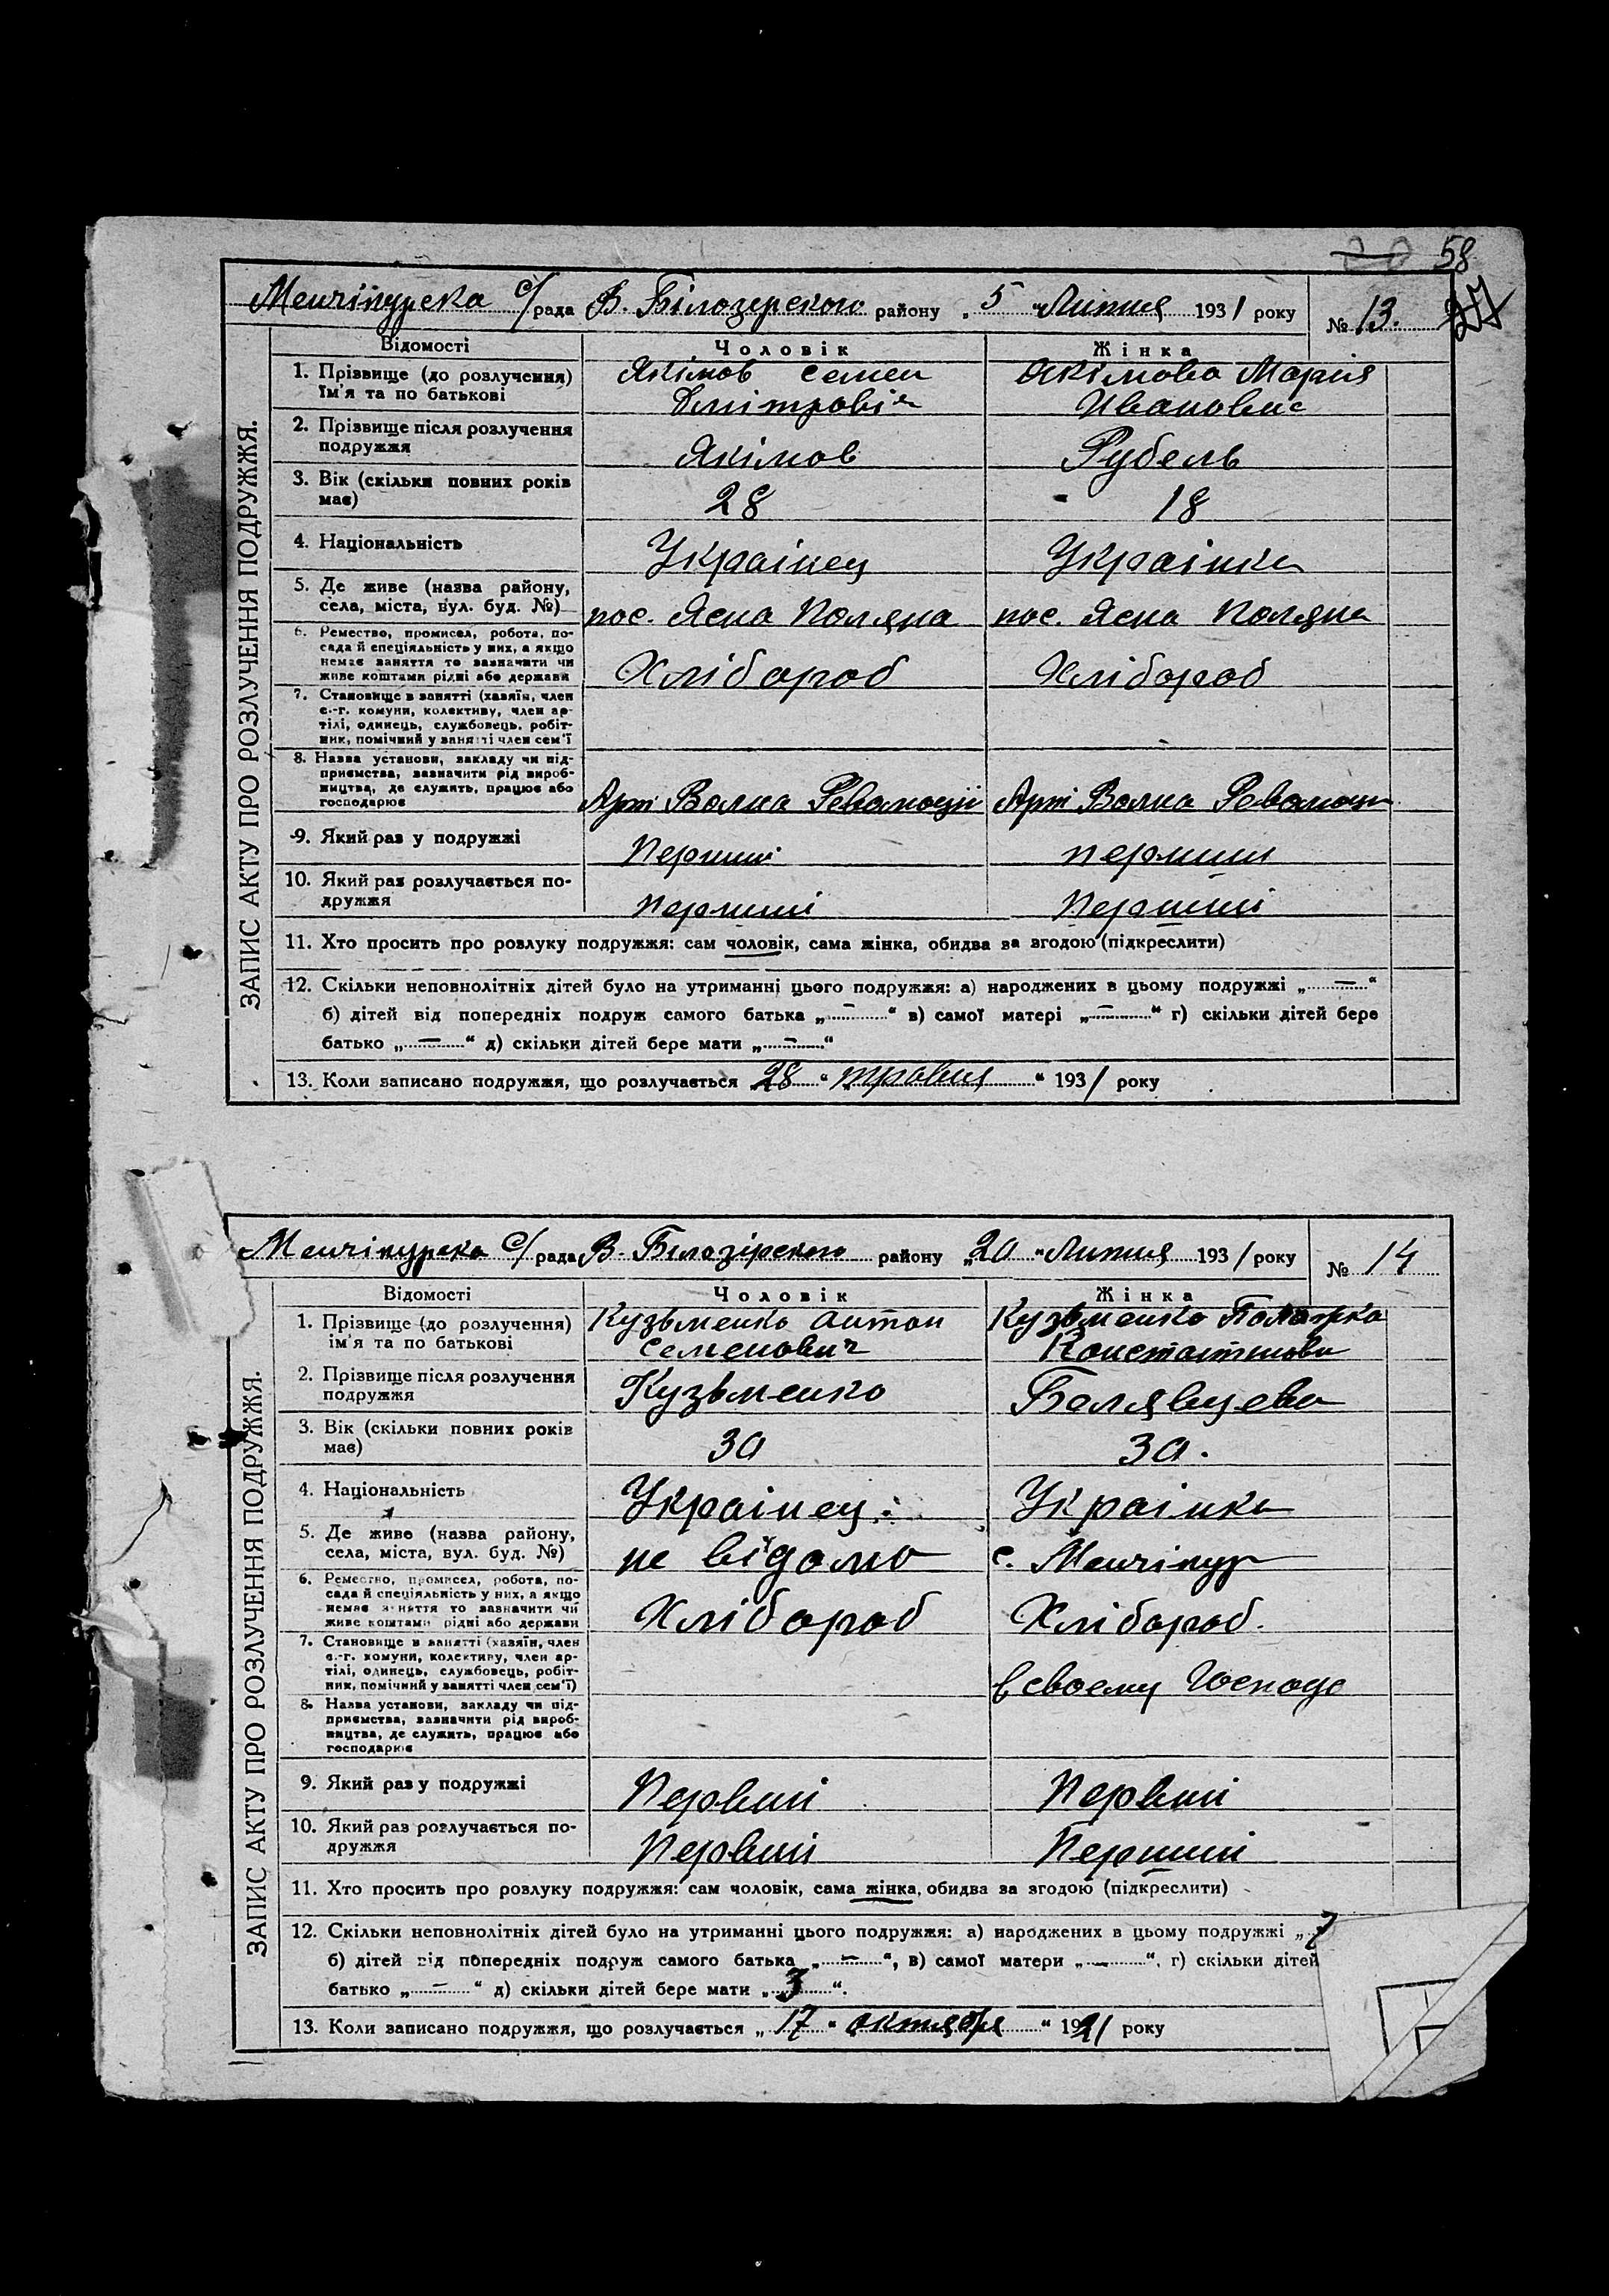 58
Менчікурска с/рада В. Білозерского району „5“ Липня 1931 року № 13. 27
ЗАПИС АКТУ ПРО РОЗЛУЧЕННЯ ПОДРУЖЖЯ.
Відомості Чоловік Жінка
1. Прізвище (до розлучення) Якімов Семен Якімова Марія
їм'я та по батькові Дмітрович Ивановне
2. Прізвище після розлучення
подружжя Якімов Рубель
3. Вік (скільки повних років
має) 28 18
4. Національність Украінец Украінка
5. Де живе (назва району,
села, міста, вул. буд. №) пос. Ясна Поляна пос. Ясна Поляна
6. Ремество, промисел, робота, по-
сада й спеціяльність у них, а якщо
немає заняття то зазначити чи
живе коштами рідні або держави Хлібороб Хлібороб
7. Становище в занятті (хазяїн, член
с.-г. комуни, колективу, член ар-
тілі, одинець, службовець, робіт-
ник, помічний у занятті член сем'ї
8. Назва установи, закладу чи під-
приємства, зазначити рід вироб-
ництва, де служить, працює або
господарює Арт Волна Революціи Арт Волна Революци
9. Який раз у подружжі Перший перший
10. Який раз розлучається по-
дружжя перший Перший
11. Хто просить про розлуку подружжя: сам чоловік, сама жінка, обидва за згодою (підкреслити)
12. Скільки неповнолітніх дітей було на утриманні цього подружжя: а) народжених в цьому подружжі „—“
б) дітей від попередніх подруж самого батька „—“ в) самої матері „—“ г) скільки дітей бере
батько „—“ д) скільки дітей бере мати „—“
13. Коли записано подружжя, що розлучається 28 “ травня “ 1931 року
Менчікурска с/рада В. Білозірского району „20“ Липня 1931 року № 14
ЗАПИС АКТУ ПРО РОЗЛУЧЕННЯ ПОДРУЖЖЯ.
Відомості Чоловік Жінка
1. Прізвище (до розлучення) Кузьменко Антон Кузьменко Палажка
ім'я та по батькові Семенович
2. Прізвище після розлучення
подружжя Кузьменко Белявцева
3. Вік (скільки повних років
має) 30 30.
4. Національність Украінец. Украінка
5. Де живе (назва району,
села, міста, вул. буд. №) не відомо с. Менчікур
6. Ремество, промисел, робота, по-
сада й спеціяльність у них, а якщо
немає заняття то зазначити чи
живе коштами рідні або держави Хлібороб Хлібороб.
7. Становище в занятті (хазяїн, член
с.-г. комуни, колективу, член ар-
тілі, одинець, службовець, робіт-
ник, помічний у занятті член сем'ї) в своему Господ
8. Назва установи, закладу чи під-
приємства, зазначити рід вироб-
ництва, де служить, працює або
господарює
9. Який раз у подружжі Первий Первий
10. Який раз розлучається по-
дружжя Первий Перший
11. Хто просить про розлуку подружжя: сам чоловік, сама жінка, обидва за згодою (підкреслити)
12. Скільки неповнолітніх дітей було на утриманні цього подружжя: а) народжених в цьому подружжі „
б) дітей від попередніх подруж самого батька „—“, в) самої матери „—“. г) скільки дітей
батько „—“ д) скільки дітей бере мати „3“.
13. Коли записано подружжя, що розлучається „17“ октября “ 1921 року